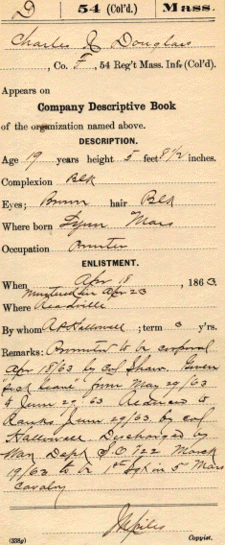 D 54 (Col'd.) Mass.
Charles R Douglass
, Co. F, 54 Reg't Mass. Inf. (Col'd.)
Appears on
Company Descriptive Book
of the organization named above.
DESCRIPTION.
Age 19 years height 5 feet 8 1/2 inches.
Complexion Blk
Eyes; Brown hair Blk
Where born Lynn Mass
Occupation Printer
ENLISTMENT.
When Apr 18, 1863
Mustered in Apr 23
Where Readville
By whom Hallowell; term 3 y'rs.
Remarks: Promoted to be corporal
Apr 18/63 by Col Shaw. Given
sick leave from May 29/63
to June 29/63 Reduced to
Ranks June 29/63 by Col
Hallowell Discharged by
War Dept S.O. 122 March
19/63 to be 1st Sgt in 5 Mass
Cavalry
(383g) Copyist.